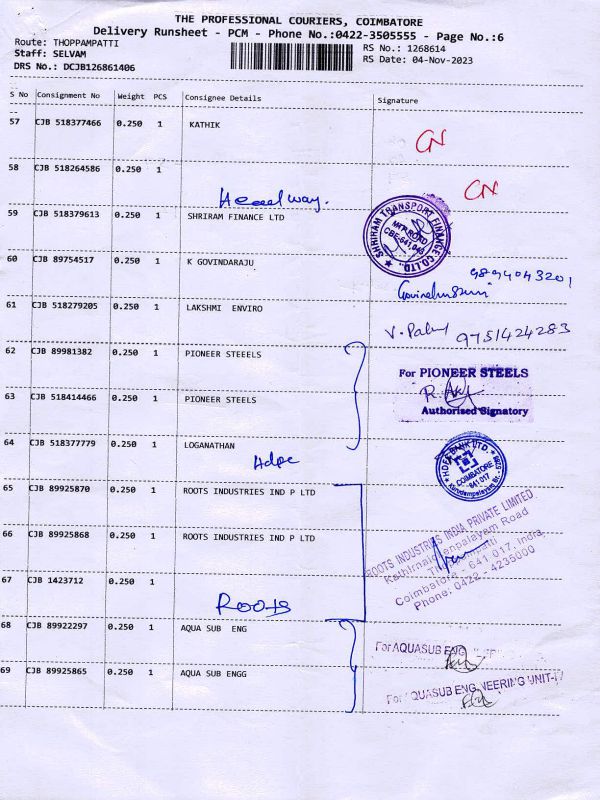 THE PROFESSIONAL COURIERS, COIMBATORE
Delivery Runsheet - PCM - Phone No.:0422-3505555 - Page No.:6
Route: THOPPAMPATTI
RS No.: 1268614
Staff: SELVAM
RS Date: 04-Nov-2023
DRS No.: DCJB126861406
S No Consignment No Weight PCS Consignee Details Signature
57 CJB 518377466 0.250 1 KATHIK
CN
58 CJB 518264586 0.250 1
Headway.
CN
59 CJB 518379613 0.250 1 SHRIRAM FINANCE LTD
SHRIRAM TRANSPORT FINANCE CO.LTD.
MTP ROAD
CBE-641 043
60 CJB 89754517 0.250 1 K GOVINDARAJU
9894043201
61 CJB 518279205 0.250 1 LAKSHMI ENVIRO
9751424283
62 CJB 89981382 0.250 1 PIONEER STEEELS
For PIONEER STEELS
63 CJB 518414466 0.250 1 PIONEER STEELS
Authorised Signatory
64 CJB 518377779 0.250 1 LOGANATHAN
COIMBATORE
641 017
65 CJB 89925870 0.250 1 ROOTS INDUSTRIES IND P LTD
66 CJB 89925868 0.250 1 ROOTS INDUSTRIES IND P LTD
ROOTS INDUSTRIES INDIA PRIVATE LIMITED
Road
Coimbatore - 641 017, India
Phone: 0422 - 4235000
67 CJB 1423712 0.250 1
Roots
68 CJB 89922297 0.250 1 AQUA SUB ENG
For AQUASUB ENG
69 CJB 89925865 0.250 1 AQUA SUB ENGG